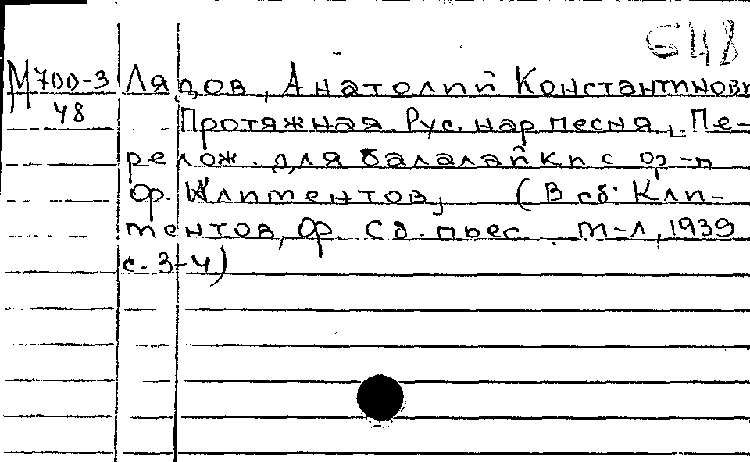 648
М 700-3 Лядов, Анатолий Константинович
48
Протяжная. Рус. нар песня. Пе-
релож. для балалайки с ф-п
Ор. Климентов, (В сб: Кли-
ментов, Ор. Сб. пьес. М-Л, 1939
с. 3-4)